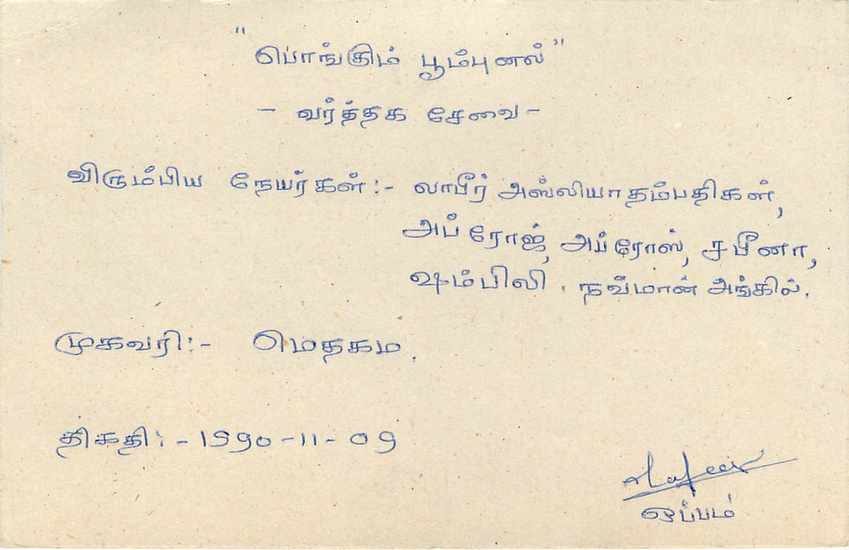 "பொங்கும் பூம்புனல்"
- வர்த்தக சேவை -
விரும்பிய நேயர்கள் :- லாபீர் அஸ்லியா தம்பதிகள்,
அப்ரோஜ், அப்ரோஸ், சபீனா,
ஷம்பிலி . நவ்மான் அங்கில்.
முகவரி :- மெதகம.
திகதி :- 1990-11-09
Lafeer
ஒப்பம்